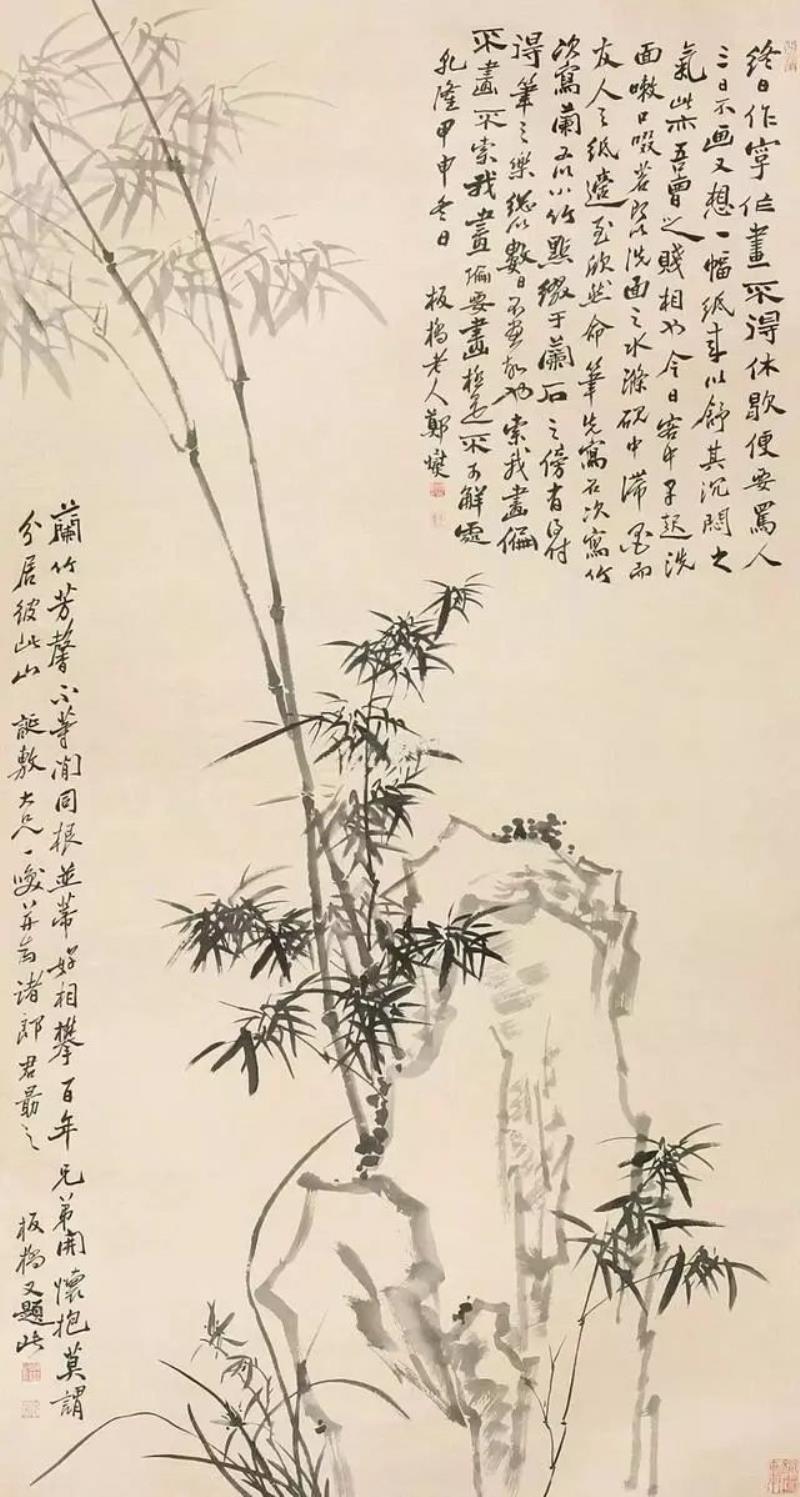 終日作字作畫不得休歇便要罵人
三日不画又想一幅紙來以舒其沉悶之
氣此亦吾曹之賤相也今日客中早起洗
面嗽口啜茗即以洗面之水滌硯中滯墨而
友人之紙適至欣然命筆先寫石次寫竹
次寫蘭又以小竹點綴于蘭石之傍有
得筆之樂總以數日不畫故也索我畫偏
不畫不索我畫偏要畫極是不可解處
乾隆甲申冬日 板橋老人鄭燮
蘭竹芳馨不等閒同根並蒂好相攀百年兄弟開懷抱莫謂
分居彼此山 誕敷大兄一笑并爲諸郎君勗之 板橋又題此